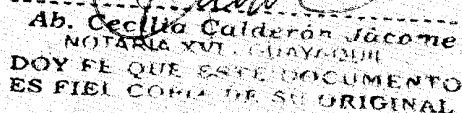 Ab. Cecilia Calderón Jácome
NOTARIA XVI - GUAYAQUIL
DOY FE QUE ESTE DOCUMENTO
ES FIEL COPIA DE SU ORIGINAL